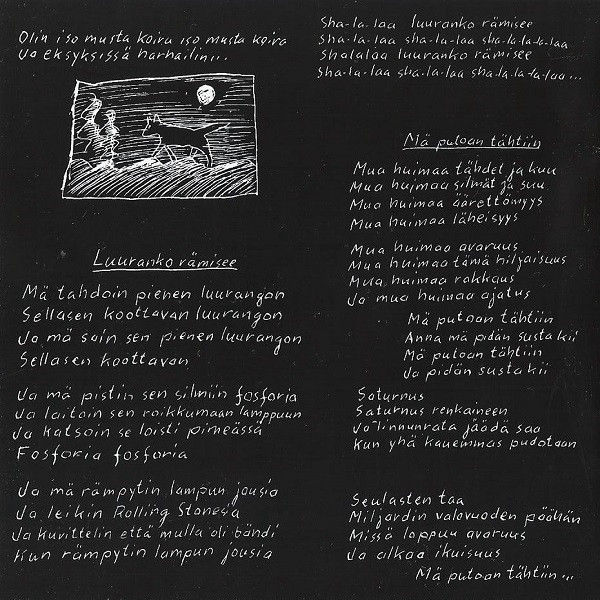 Olin iso musta koira iso musta koira
Ja eksyksissä harhailin...
Luuranko rämisee
Mä tahdoin pienen luurangon
Sellasen koottavan luurangon
Ja mä sain sen pienen luurangon
Sellasen koottavan
Ja mä pistin sen silmiin fosforia
Ja laitoin sen roikkumaan lamppuun
Ja katsoin se loisti pimeässä
Fosforia fosforia
Ja mä rämpytin lampun jousia
Ja leikin Rolling Stonesia
Ja kuvittelin että mulla oli bändi
Kun rämpytin lampun jousia
Sha-la-laa luuranko rämisee
Sha-la-laa sha-la-laa sha-la-la-la-laa
Shalalaa luuranko rämisee
Sha-la-laa sha-la-laa sha-la-la-la-laa...
Mä putoan tähtiin
Mua huimaa tähdet ja kuu
Mua huimaa silmät ja suu
Mua huimaa äärettömyys
Mua huimaa läheisyys
Mua huimaa avaruus
Mua huimaa tämä hiljaisuus
Mua huimaa rakkaus
Ja mua huimaa ajatus
Mä putoan tähtiin
Anna mä pidän susta kii
Mä putoan tähtiin
Ja pidän susta kii
Saturnus
Saturnus renkaineen
Ja linnunrata jäädä saa
Kun yhä kauemmas pudotaan
Seulasten taa
Miljardin valovuoden päähän
Missä loppuu avaruus
Ja alkaa ikuisuus
Mä putoan tähtiin...